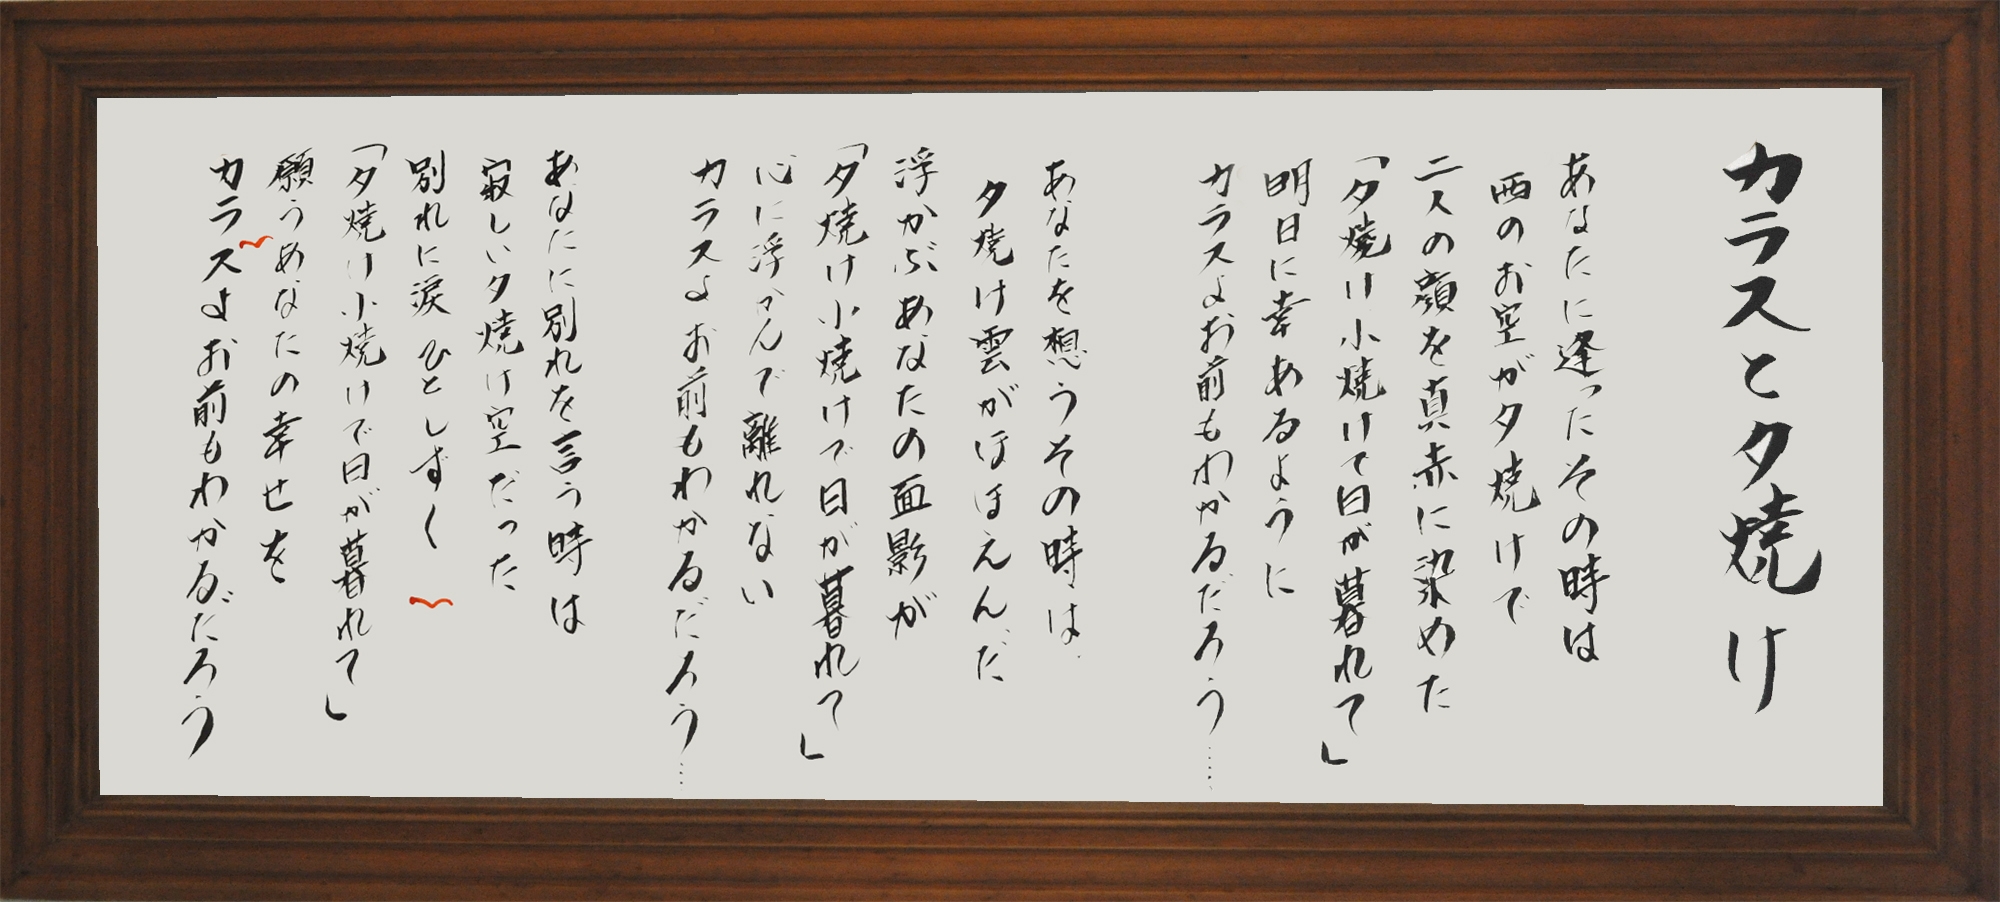 カラスと夕焼け
あなたに逢ったその時は
西のお空が夕焼けで
二人の顔を真赤に染めた
「夕焼け小焼けて日が暮れて」
明日に幸あるように
カラスよお前もわかるだろう……
あなたを想うその時は
夕焼け雲がほほえんだ
浮かぶあなたの面影が
「夕焼け小焼けで日が暮れて」
心に浮かんで離れない
カラスよお前もわかるだろう……
あなたに別れを言う時は
寂しい夕焼け空だった
別れに涙ひとしずく
「夕焼け小焼けで日が暮れて」
願うあなたの幸せを
カラスよお前もわかるだろう